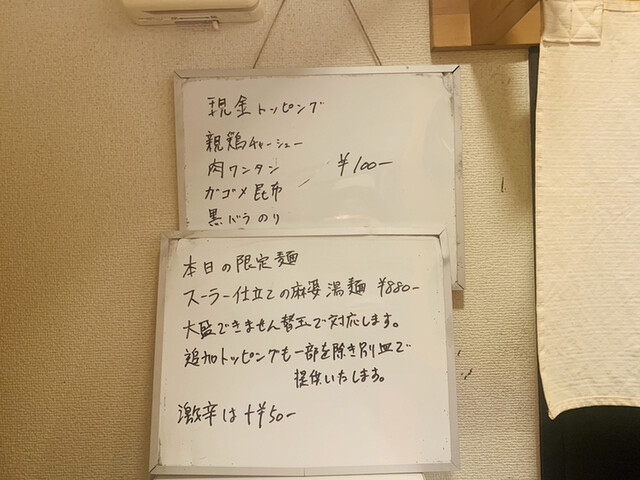 現金トッピング
親鶏チャーシュー
肉ワンタン ¥100-
ガゴメ昆布
黒バラのり
本日の限定麺
スーラー仕立ての麻婆湯麺 ¥880-
大盛できません替玉で対応します。
追加トッピングも一部を除き別皿で
提供いたします。
激辛は+¥50-